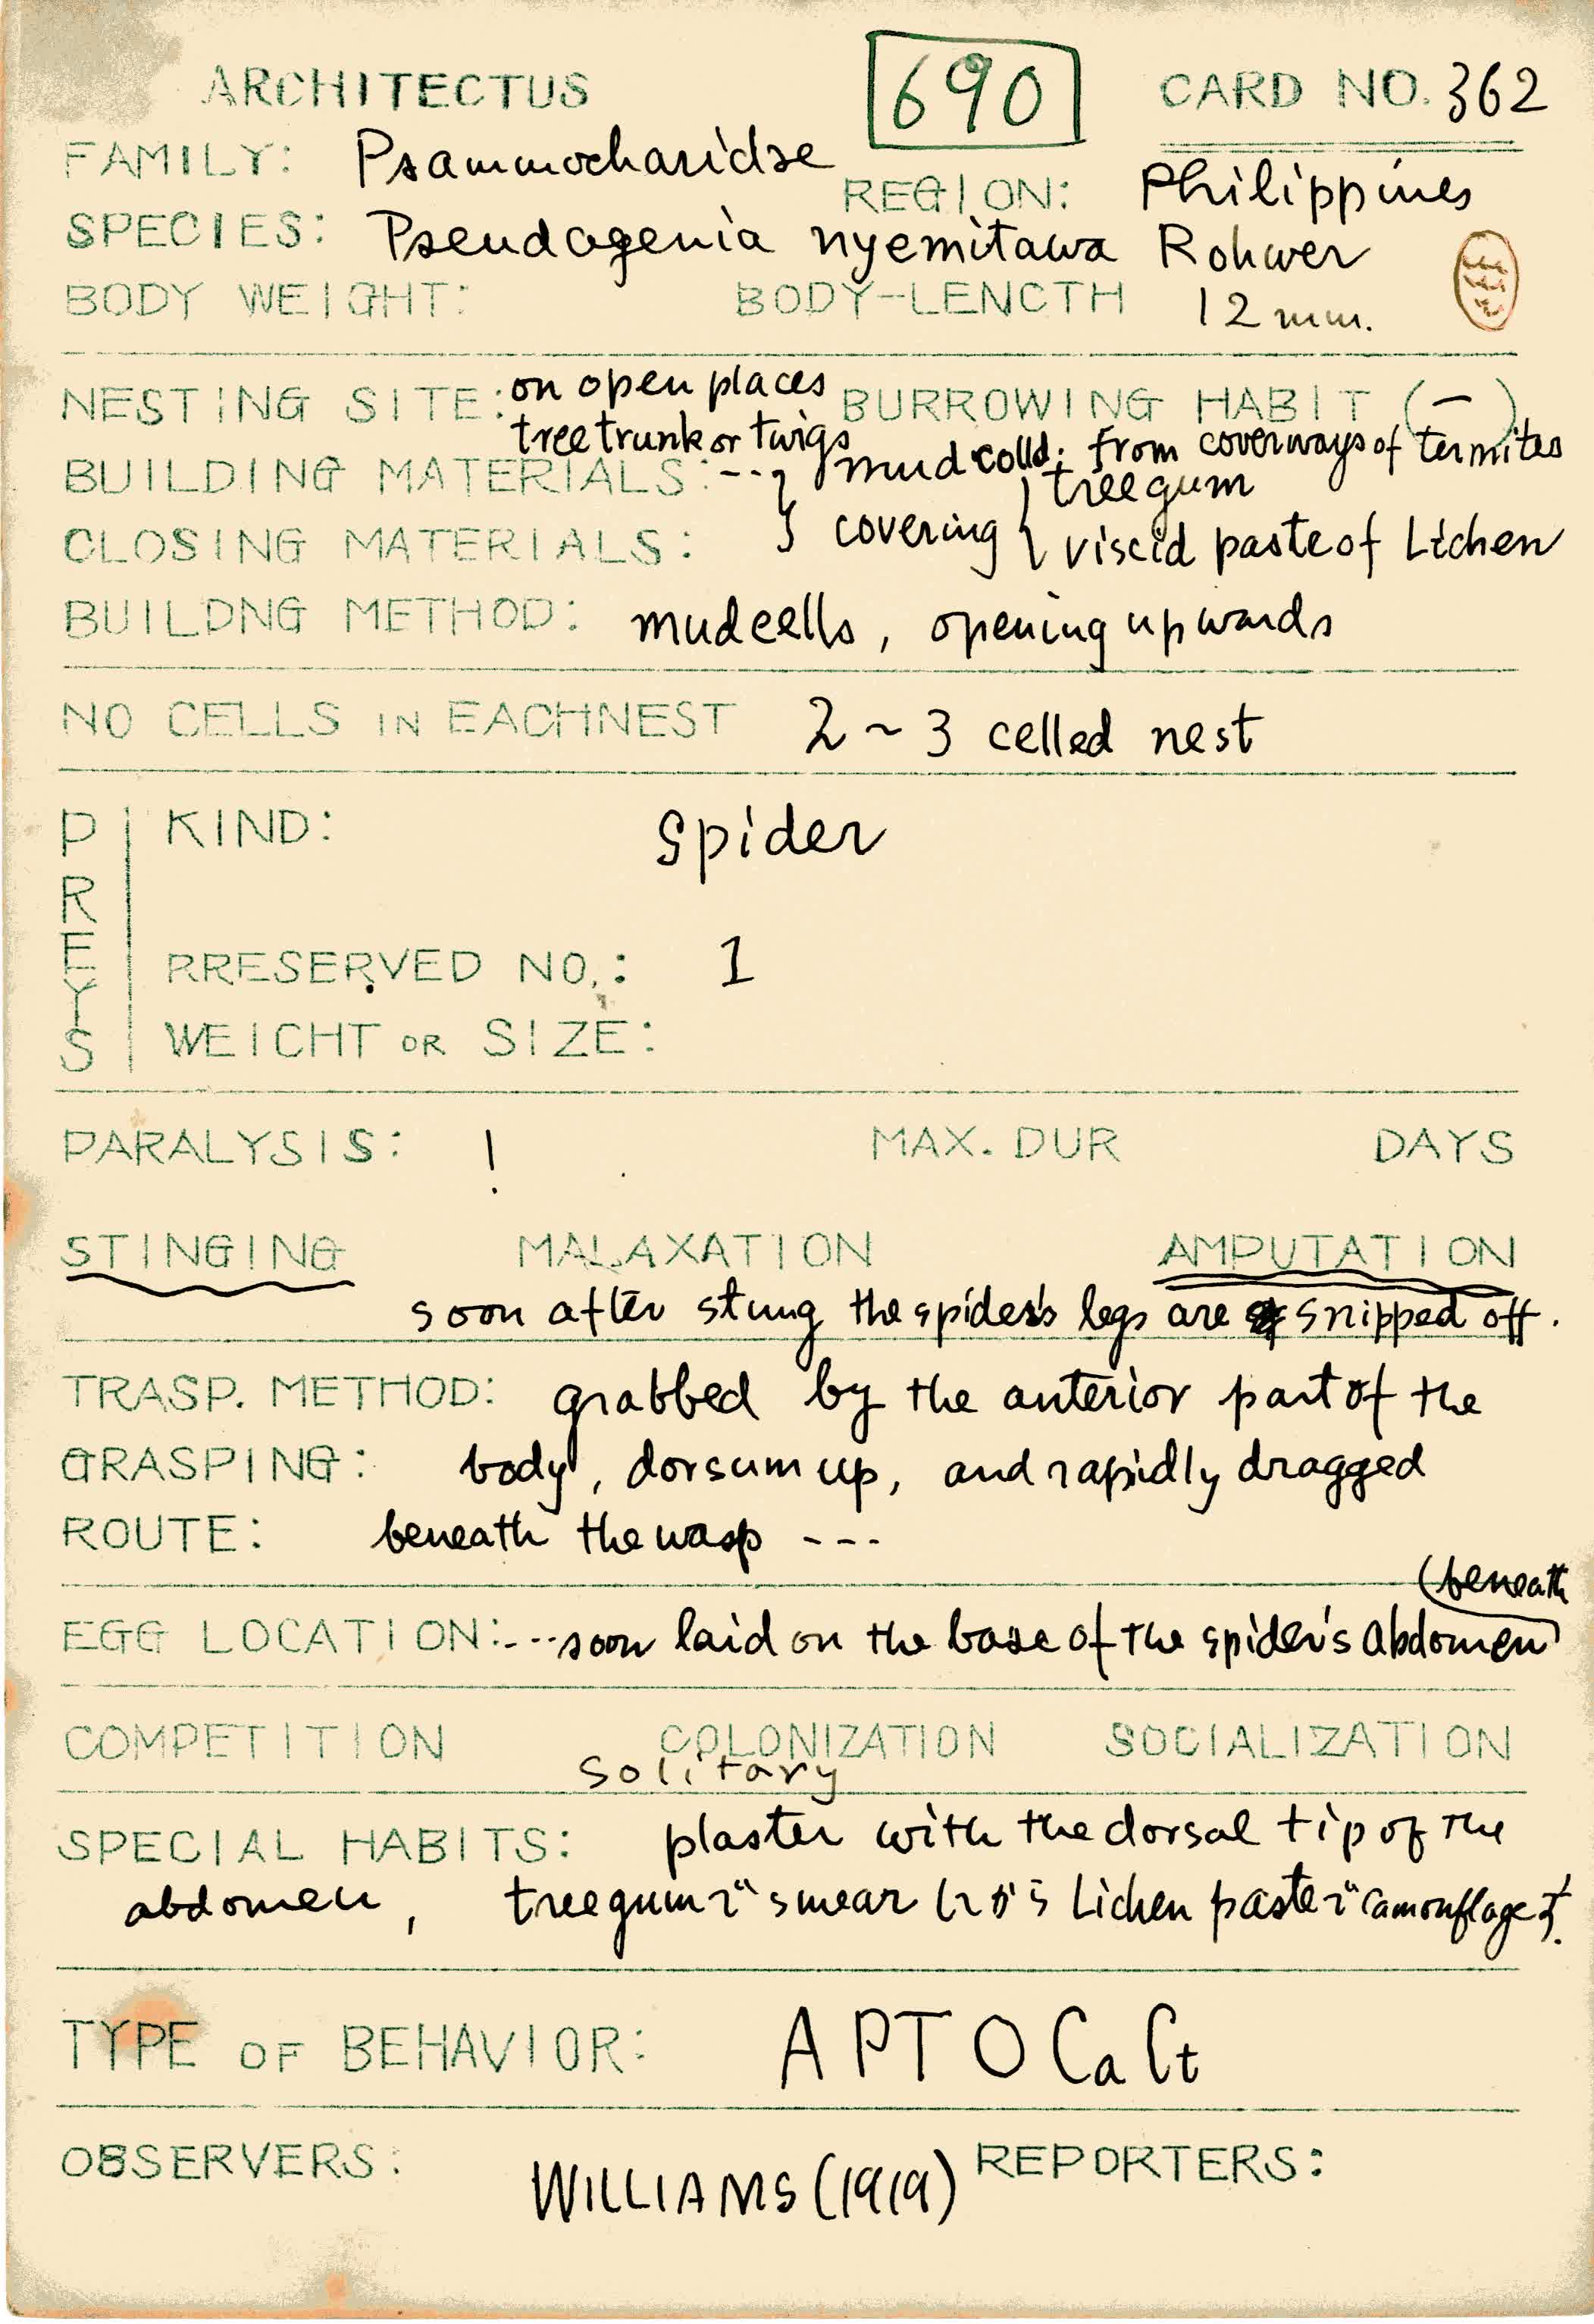 ARCHITECTUS 690 CARD NO. 362
FAMILY: Psammocharidae
REGION: Philippines
SPECIES: Pseudagenia nyemitawa Rohwer
BODY WEIGHT: BODY-LENGTH 12 mm.
NESTING SITE: on open places BURROWING HABIT (-)
tree trunk or twigs
BUILDING MATERIALS: --- mud colld. from coverways of termites
CLOSING MATERIALS: } covering { tree gum
viscid paste of Lichen
BUILDNG METHOD: mudcells, opening upwards
NO CELLS IN EACHNEST 2 ~ 3 celled nest
PREYS
KIND: Spider
RRESERVED NO.: 1
WEICHT OR SIZE:
PARALYSIS: ! MAX. DUR DAYS
STINGING MALAXATION AMPUTATION
soon after stung the spider's legs are snipped off.
TRASP. METHOD: grabbed by the anterior part of the
GRASPING: body, dorsum up, and rapidly dragged
ROUTE: beneath the wasp ---
(beneath
EGG LOCATION: --- soon laid on the base of the spider's abdomen)
COMPETITION COLONIZATION SOCIALIZATION
Solitary
SPECIAL HABITS: plaster with the dorsal tip of the
abdomen, tree gum で smear し Lichen paste で camouflage す.
TYPE OF BEHAVIOR: A P T O Ca Ct
OBSERVERS: WILLIAMS (1919) REPORTERS: